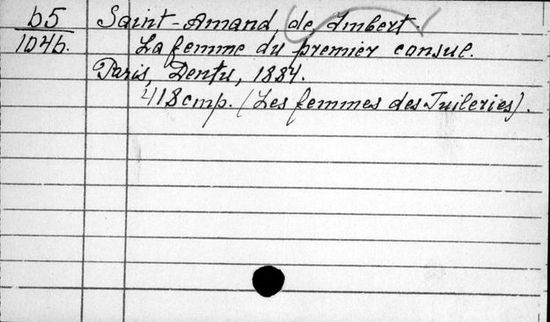 b5
1046.
Saint-Amand de Imbert
La femme du premier consul.
Paris, Dentu, 1884.
418 стр. (Les femmes des Tuileries).